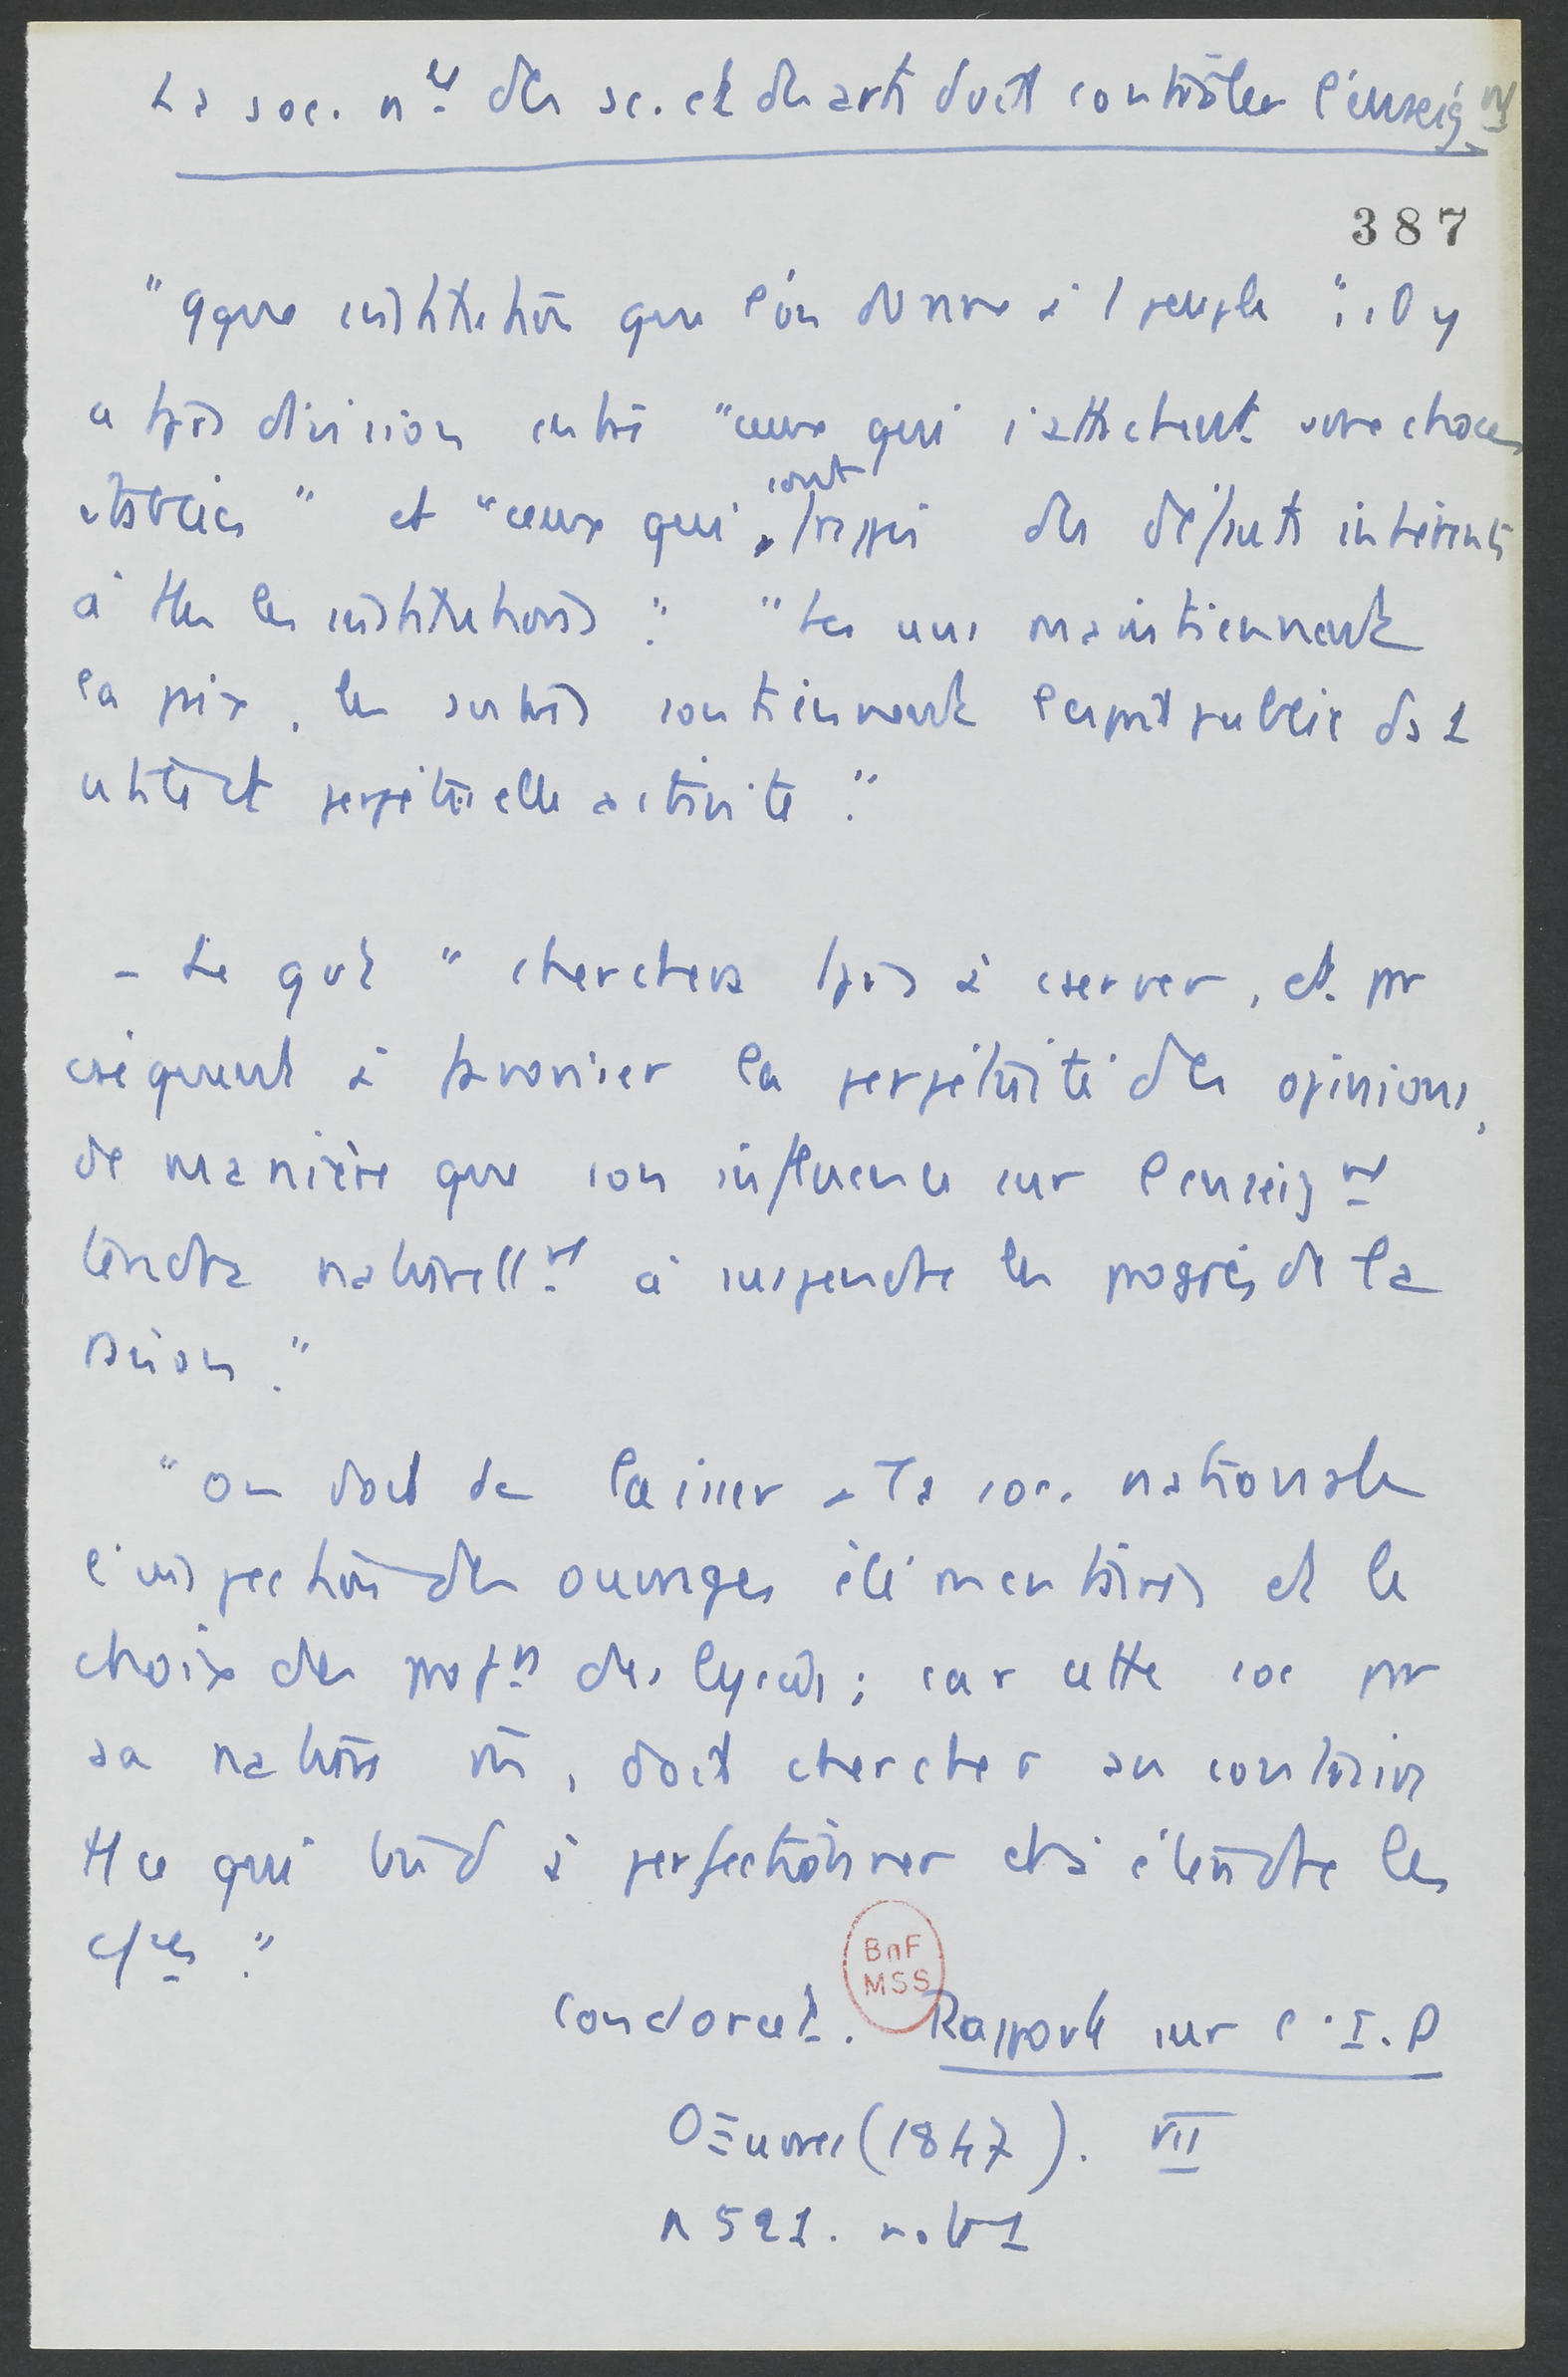 La soc. nle des sc. et des arts doit contrôler l'enseignt
387
"qque institution que l'on donne à 1 peuple", il y
a tjrs division entre "ceux qui s'attachent aux choses
établies" et "ceux qui sont frappés des défauts inhérents
à ttes les institutions". "Les uns maintiennent
la paix, les autres soutiennent l'esprit public ds 1
utile et perpétuelle activité."
- Le gvt "cherchera tjrs à cserver, et par
cséquent à favoriser la perpétuité des opinions,
de manière que son influence sur l'enseignt
tendra naturellt à suspendre les progrès de la
raison."
"On doit dc laisser à la soc. nationale
l'inspection des ouvrages élémentaires et le
choix des profrs des lycées; car cette soc par
sa nature m̄, doit chercher au contraire
tt ce qui tend à perfectionner et à étendre les
BnF
MSS
Condorcet. Rapport sur l'I.P
Œuvres (1847). VII
p 521. note 1